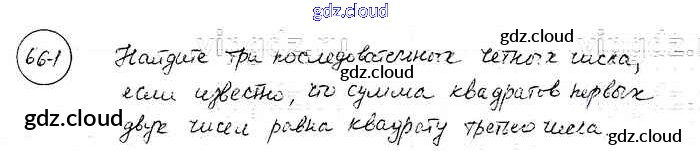 gdz.cloud
661 Найдите три последовательных четных числа,
gdz.cloud
gdz.cloud
если известно, что сумма квадратов первых
gdz.cloud
gdz.cloud
двух чисел равна квадрату третьего числа.
gdz.cloud